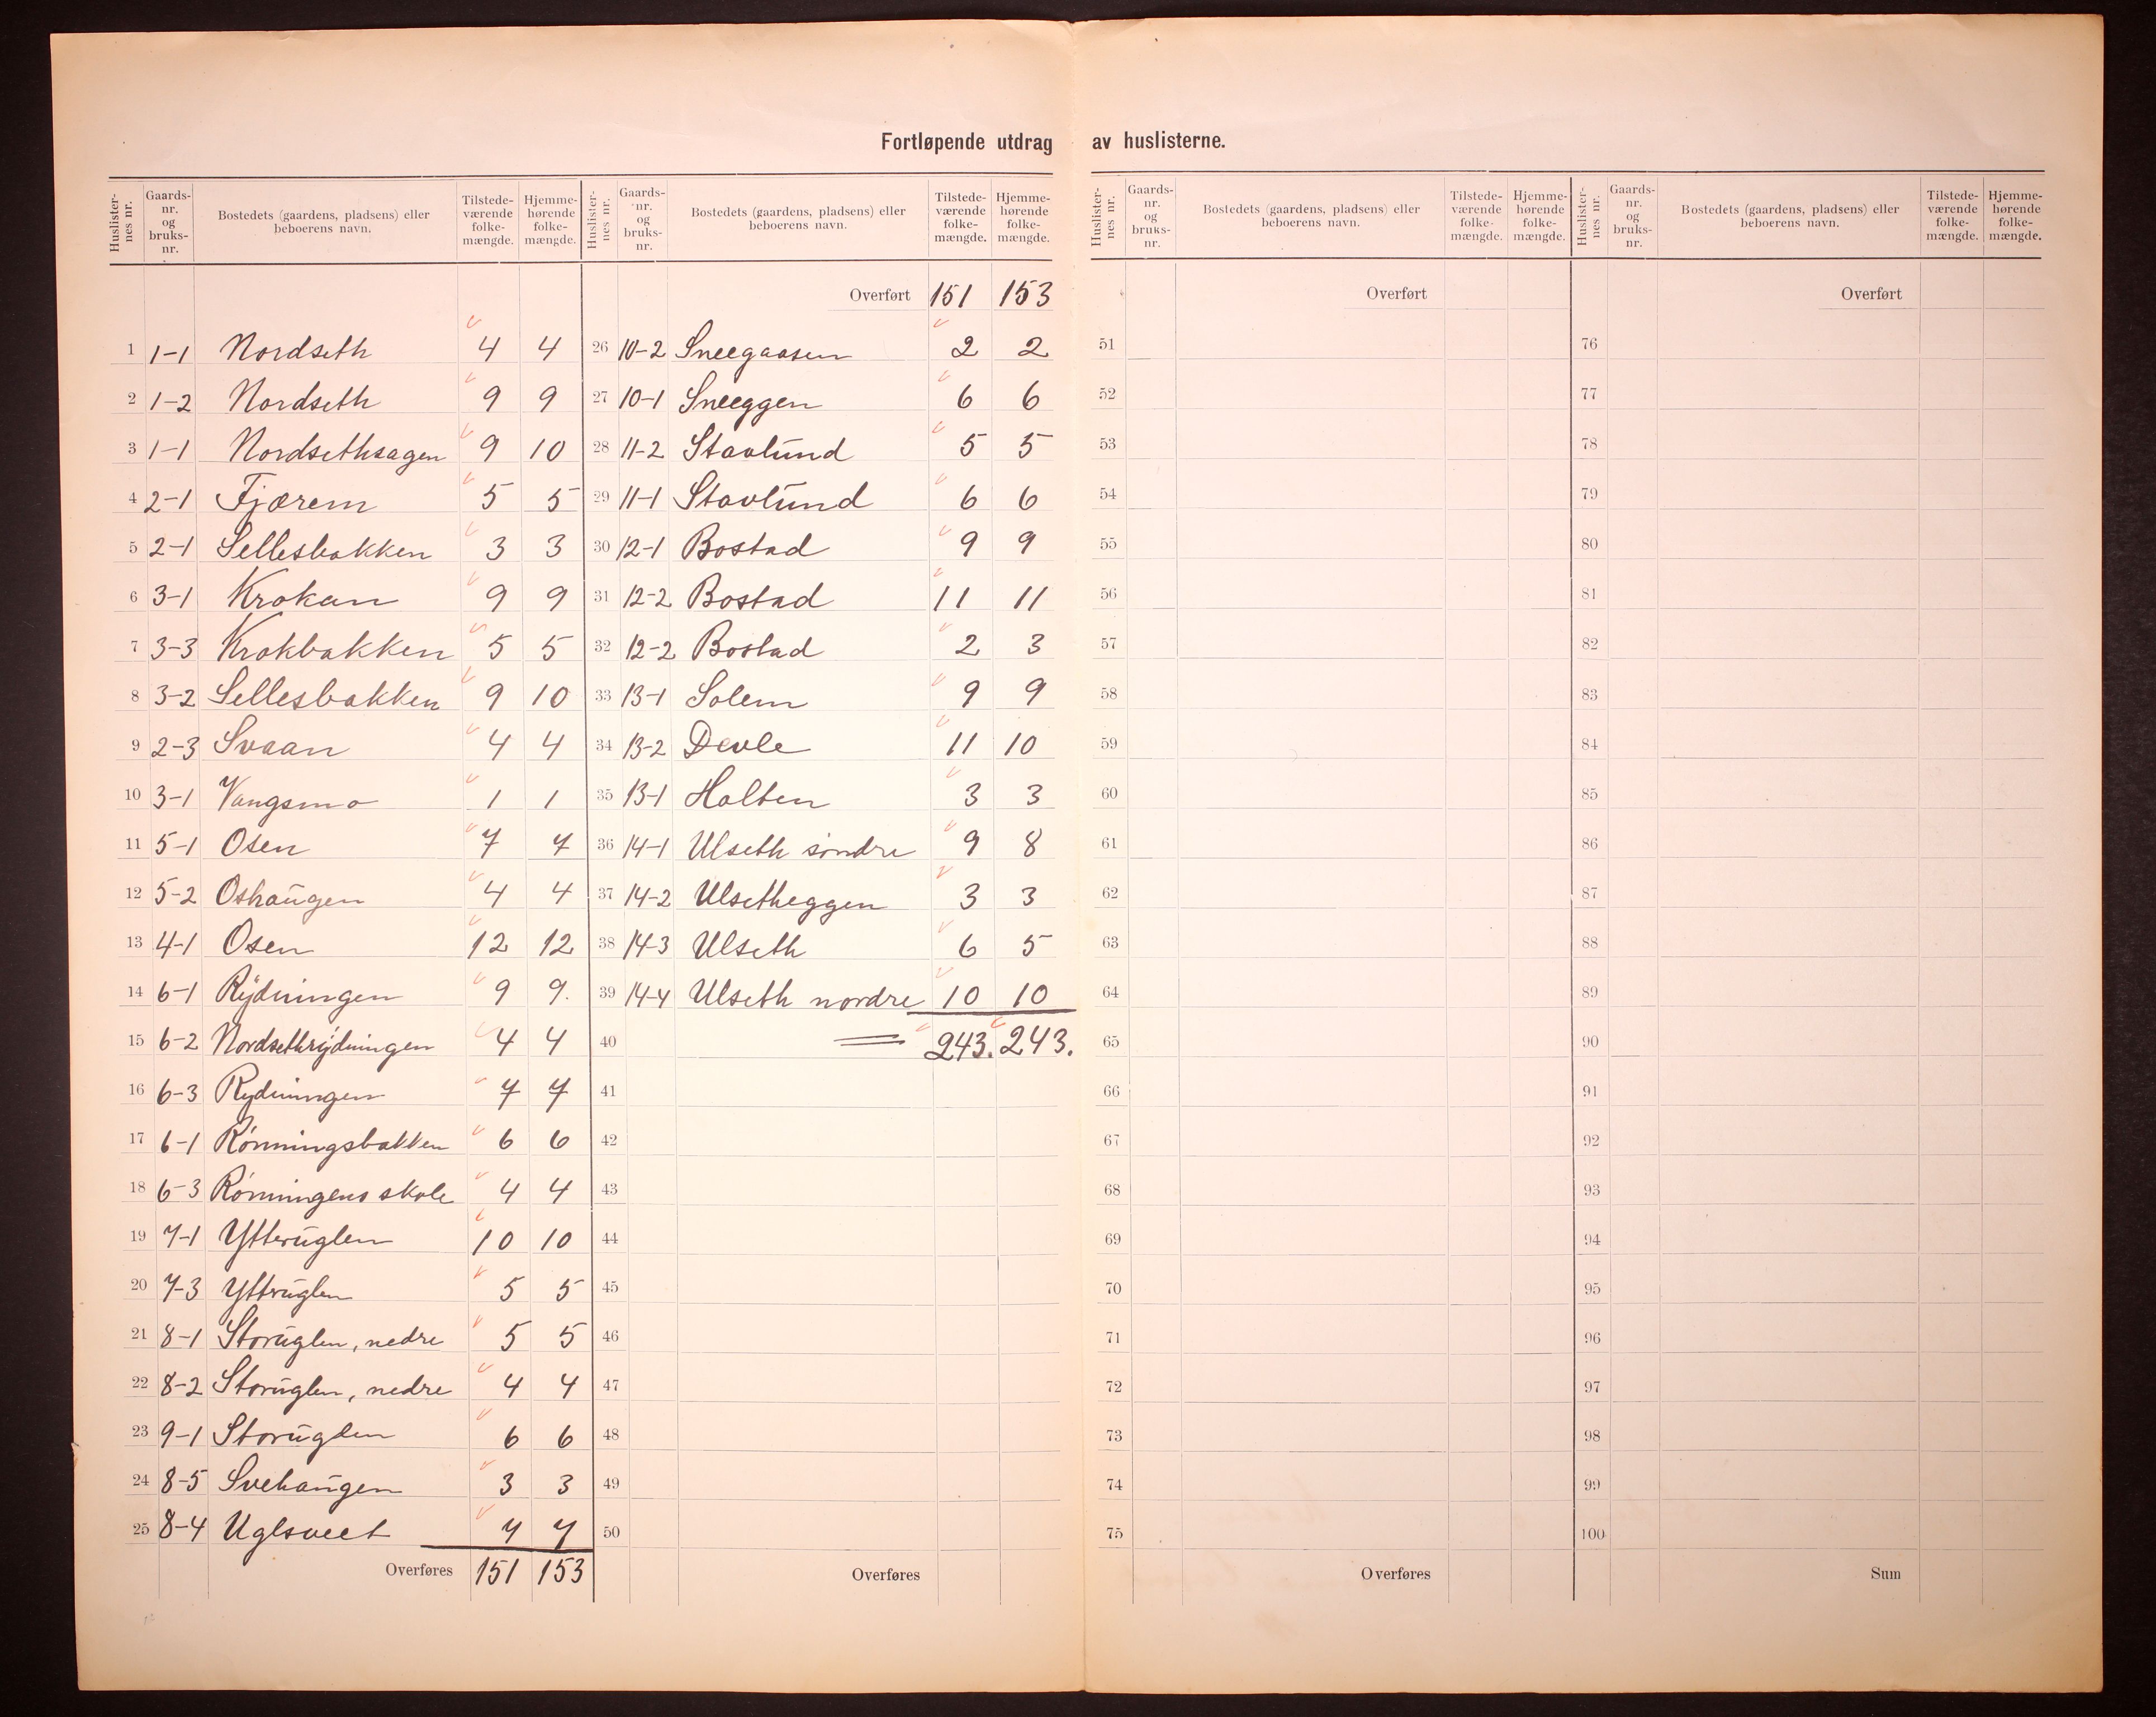 Fortløpende utdrag av huslisterne.
Huslister-nes nr. Gaards-nr. og bruks-nr. Bostedets (gaardens, pladsens) eller beboerens navn. Tilstede-værende folke-mængde. Hjemme-hørende folke-mængde.
1 1-1 Nordseth 4 4
2 1-2 Nordseth 9 9
3 1-1 Nordsethsagen 9 10
4 2-1 Fjærem 5 5
5 2-1 Sellesbakken 3 3
6 3-1 Krokan 9 9
7 3-3 Krokbakken 5 5
8 3-2 Sellesbakken 9 10
9 2-3 Svaan 4 4
10 3-1 Vangsmo 1 1
11 5-1 Osen 7 7
12 5-2 Oshaugen 4 4
13 4-1 Osen 12 12
14 6-1 Rydningen 9 9.
15 6-2 Nordsethrydningen 4 4
16 6-3 Rydningen 7 7
17 6-1 Rönningsbakken 6 6
18 6-3 Rönningens skole 4 4
19 7-1 Ytteruglen 10 10
20 7-3 Yttruglen 5 5
21 8-1 Storuglen, nedre 5 5
22 8-2 Storuglen, nedre 4 4
23 9-1 Storuglen 6 6
24 8-5 Svehaugen 3 3
25 8-4 Uglsveet 7 7
Overføres 151 153
Huslister-nes nr. Gaards-nr. og bruks-nr. Bostedets (gaardens, pladsens) eller beboerens navn. Tilstede-værende folke-mængde. Hjemme-hørende folke-mængde.
Overført 151 153
26 10-2 Sneegaasen 2 2
27 10-1 Sneeggen 6 6
28 11-2 Stavlund 5 5
29 11-1 Stavlund 6 6
30 12-1 Bostad 9 9
31 12-2 Bostad 11 11
32 12-2 Bostad 2 3
33 13-1 Solem 9 9
34 13-2 Devle 11 10
35 13-1 Halten 3 3
36 14-1 Ulseth söndre 9 8
37 14-2 Ulsetheggen 3 3
38 14-3 Ulseth 6 5
39 14-4 Ulseth nordre 10 10
40 243. 243.
41
42
43
44
45
46
47
48
49
50
Overføres
Huslister-nes nr. Gaards-nr. og bruks-nr. Bostedets (gaardens, pladsens) eller beboerens navn. Tilstede-værende folke-mængde. Hjemme-hørende folke-mængde.
Overført
51
52
53
54
55
56
57
58
59
60
61
62
63
64
65
66
67
68
69
70
71
72
73
74
75
Overføres
Huslister-nes nr. Gaards-nr. og bruks-nr. Bostedets (gaardens, pladsens) eller beboerens navn. Tilstede-værende folke-mængde. Hjemme-hørende folke-mængde.
Overført
76
77
78
79
80
81
82
83
84
85
86
87
88
89
90
91
92
93
94
95
96
97
98
99
100
Sum